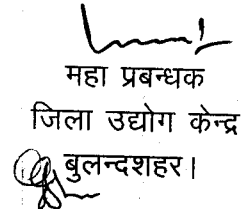 महा प्रबन्धक
जिला उद्योग केन्द्र
बुलन्दशहर।